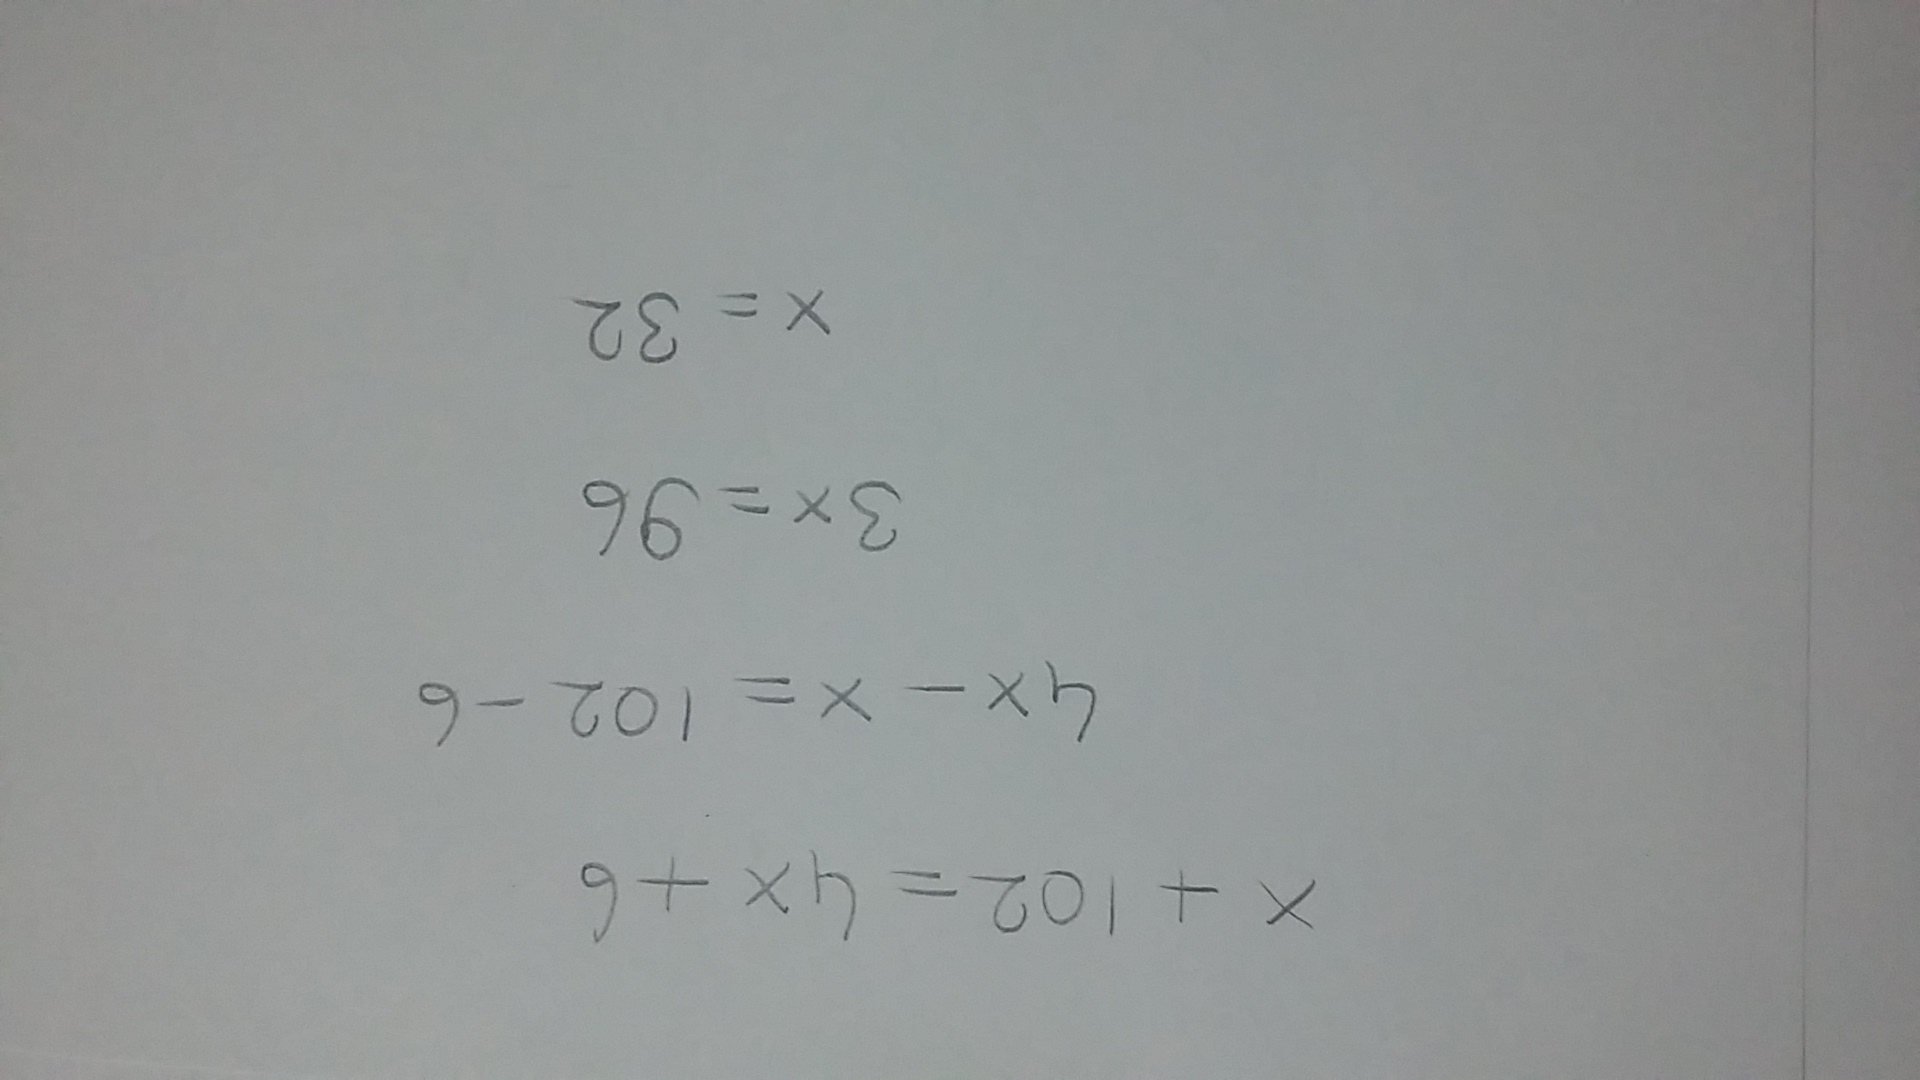 x + 102 = 4x + 6
4x - x = 102 - 6
3x = 96
x = 32